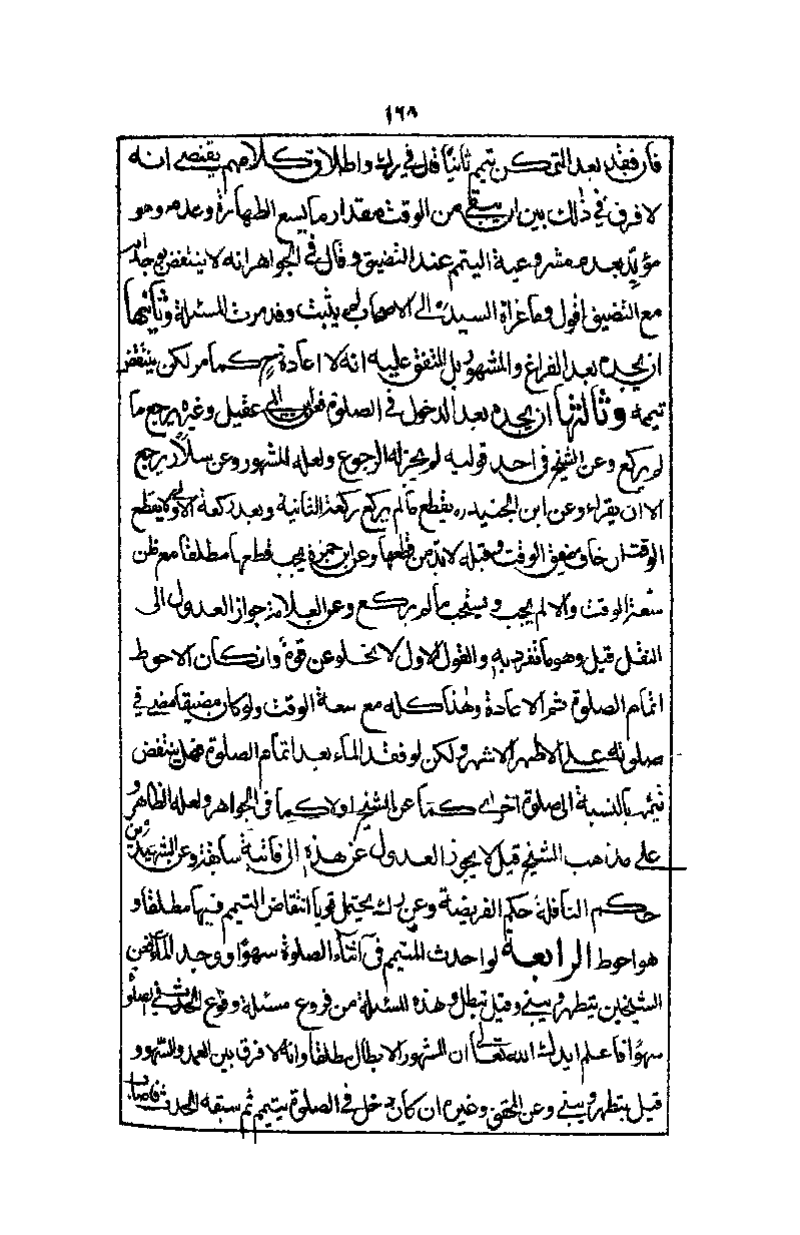 ١٦٨
فان فقد بعد التمكن تيمم ثانيا قال في يرك واطلاق كلامهم يقتضي انه
لا فرق في ذلك بين ان يبقى من الوقت مقدار ما يسع الطهارة وعدمه وهو
مؤيد بعدم مشروعية التيمم عند التضيق وقال في الجواهر انه لا ينتقض بوجدانه
مع التضيق اقول وما عزاه السيد ره الى الاصحاب لم يثبت وقد مرت المسئلة وثانيها
ان يجده بعد الفراغ والمشهور بل المتفق عليه انه لا اعادة ح كما مر لكن ينتقض
تيممه وثالثها ان يجده بعد الدخول في الصلوة فعن ابن ابي عقيل وغيره يرجع ما
لم يركع وعن الشيخ في احد قوليه لم يجز له الرجوع ولعله المشهور وعن سلار يرجع
الا ان يقراء وعن ابن الجنيد ره يقطع ما لم يركع ركعة الثانية وبعد ركعة الاولى لا يقطع
الوقت ان خاف ضيق الوقت وقبله لا بد من قطعها وعن ابن حمزة يجب قطعها مطلقا مع ظن
سعة الوقت والا لم يجب ويستحب ما لم يركع وعن العلامة جواز العدول الى
النفل قيل وهو ما تفرد به والقول الاول لا يخلو عن قوة وان كان الاحوط
اتمام الصلوة ثم الاعادة وهذا كله مع سعة الوقت ولو كان مضيقا مضى في
صلوته على الاظهر الاشهر ولكن لو فقد الماء بعد اتمام الصلوة فهل ينتقض
تيممه بالنسبة الى صلوة اخرى كما عن الشيخ او لا كما في الجواهر ولعله الظاهر و
على مذهب الشيخ قيل لا يجوز العدول عن هذه الى فائتة سابقة وعن الشهيد ره من
حكم النافلة حكم الفريضة وعن يرك يحتمل قويا انتقاض التيمم فيها مطلقا و
هو احوط الرابعة لو احدث المتيمم في اثناء الصلوة سهوا ووجد الماء فعن
الشيخين يتطهر ويبني وقيل تبطل وهذه المسئلة من فروع مسئلة وقوع الحدث في الصلو
سهوا فاعلم ايدك الله تعالى ان المشهور الابطال مطلقا وانه لا فرق بين العمد والسهو و
قيل يتطهر ويبني وعن المحقق وغيره ان كان دخل في الصلوة بتيمم ثم سبقه الحدث فاصاب